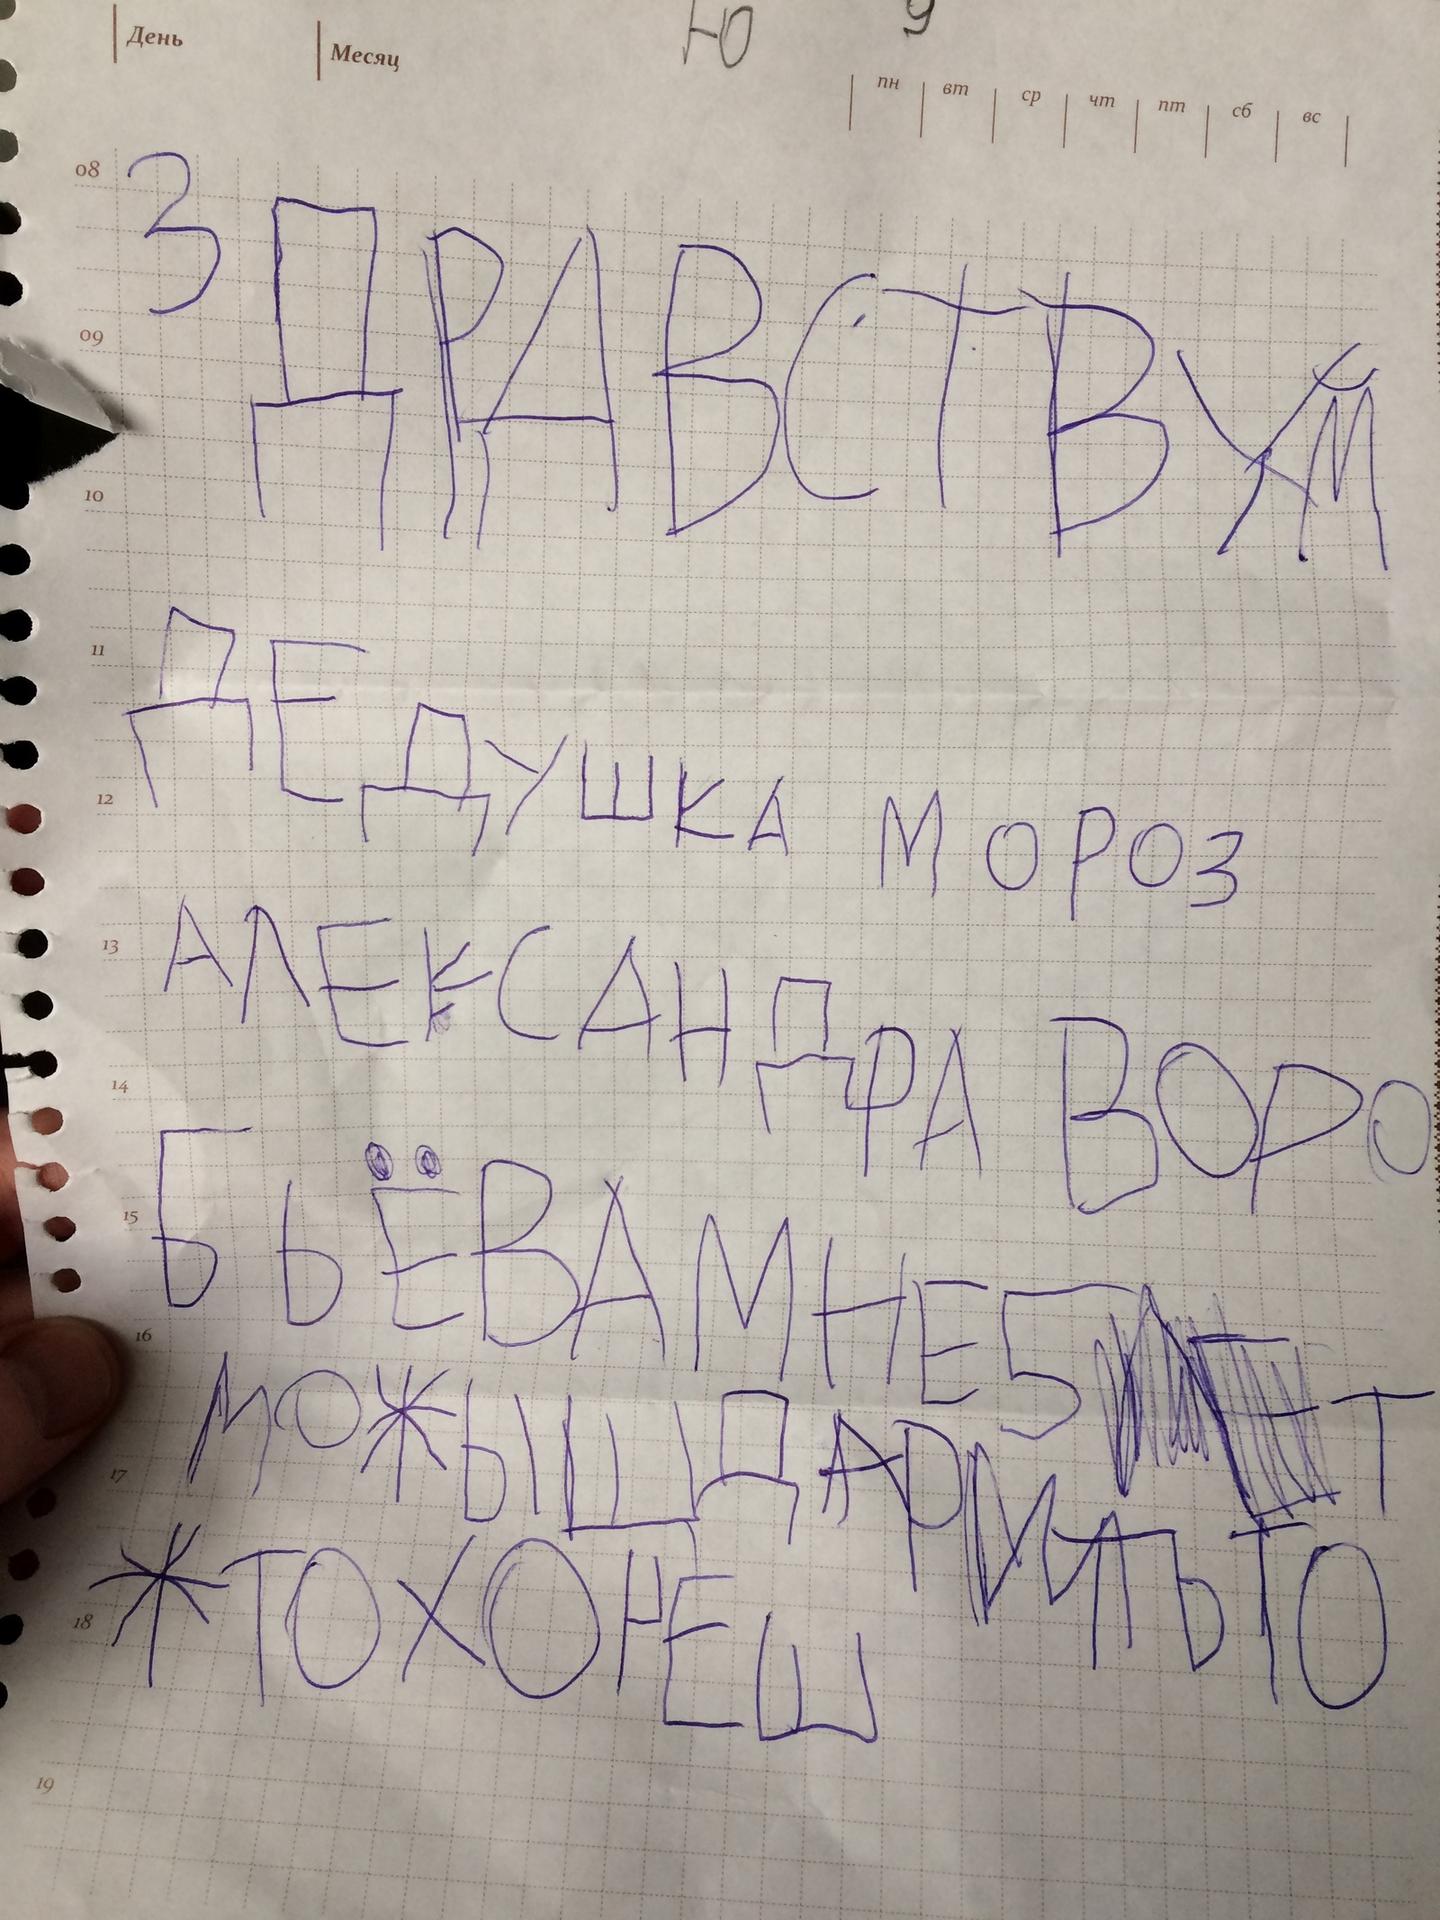 День Месяц Ю 9
пн вт ср чт пт сб вс
08
ЗДРАВСТВУЙ
09
10
11
ДЕДУШКА МОРОЗ
12
13
АЛЕКСАНДРА ВОРО
14
БЬЁВА МНЕ 5 ЛЕТ
15
16
МОЖЫШ ДАРИТЬ ТО
17
ЖТО ХОЧЕШ
18
19